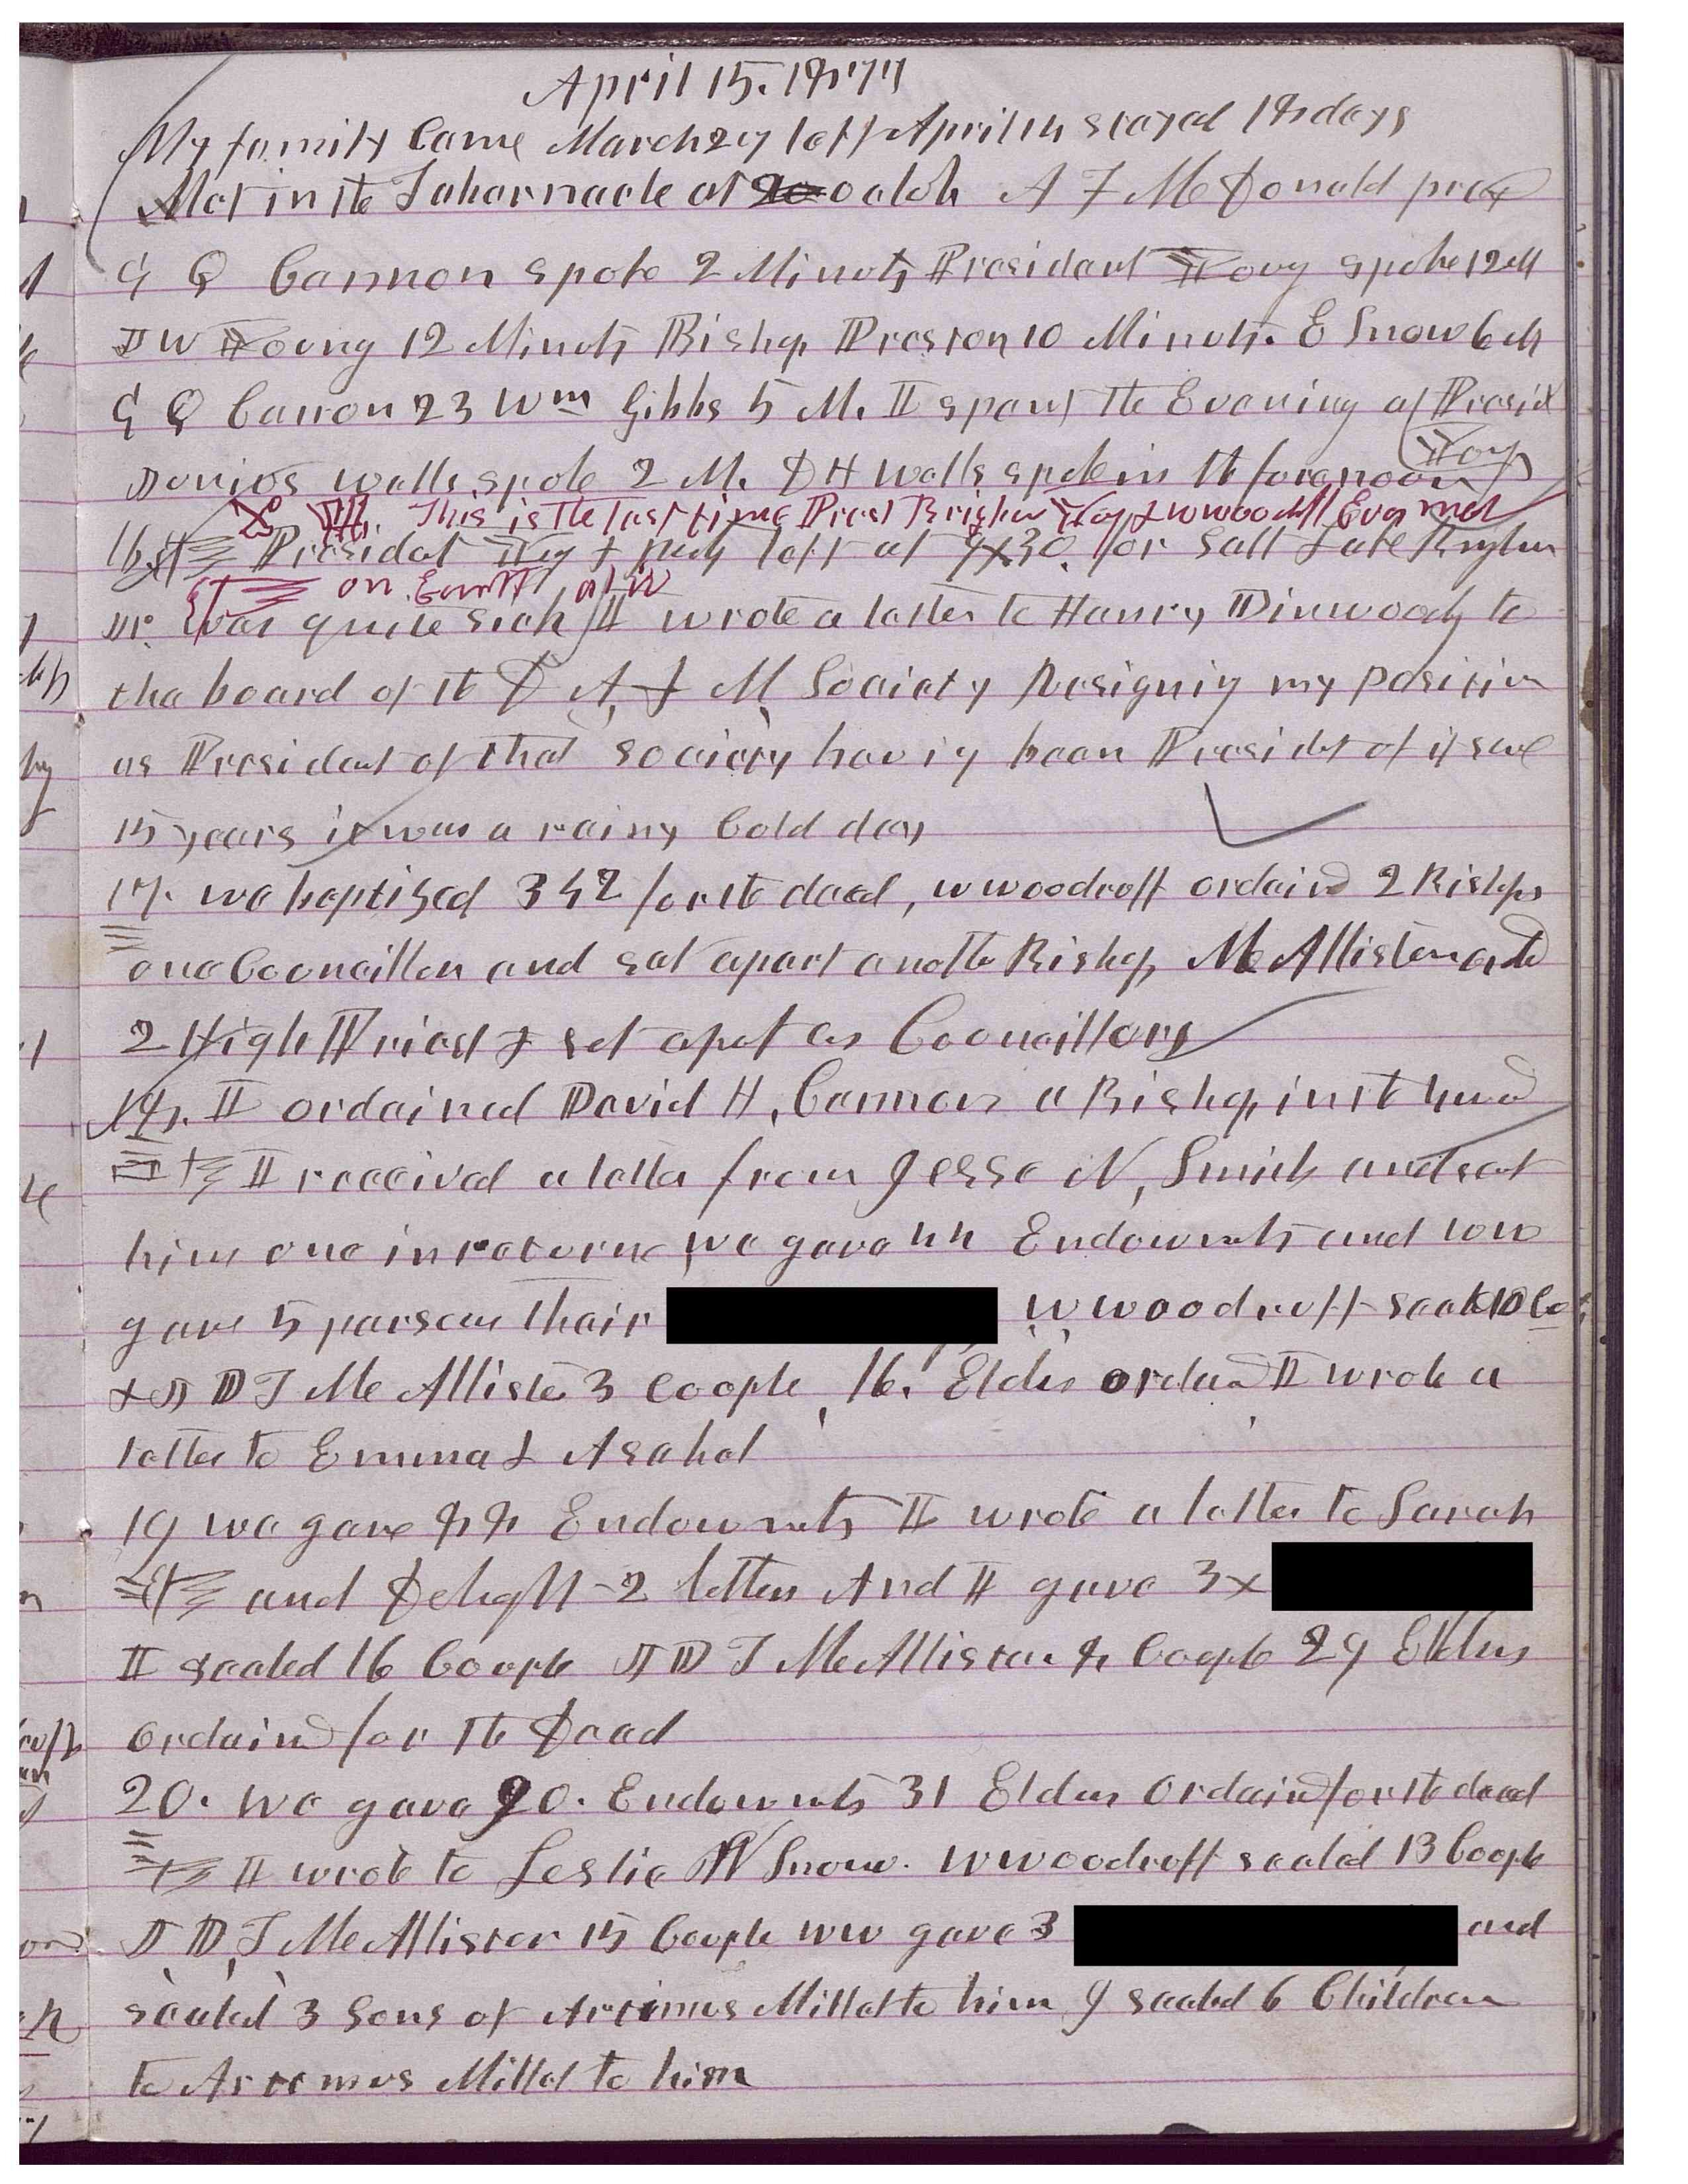 April 15. 1877
My family Came March 27 left April 14 stayed 18 days
Met in the Tabernacle at 20 oclok A F McDonald prayed
G Q Cannon spoke 2 Minuts President Young spoke 12 M
J W Young 12 Minuts Bishop Preston 10 Minuts. E Snow 6 M
G Q Cannon 23 Wm Gibbs 5 M. I spent the Evening at Presid
Young
Junios wells spoke 2 M. D H Wells spoke in the forenoon
This is the last time Presd Brigham Young & W Woodruff Ever met
16 Presidet Young & party left at 9x30 for Salt Lake Brigham
on Earth alive
Jr. was quite sick I wrote a letter to Henry Dinwoody to
the board of the D A & M Society Resigning my position
as President of that Society having been President of it some
15 years it was a rainy Cold day
17. we baptized 342 for the dead, W Woodruff ordaind 2 Bishops
one Councillor and set apart another Bishop McAllister ord
2 High Priest & set apart as Councillors
18. I ordained David H, Cannon a Bishop in the
I received a letter from Jesse N, Smith and sent
him one in return we gave 44 Endowmts and
gave 5 person thair W Woodruff seald 10 Co
& J D T McAllister 3 Coople, 16. Elders ordaind I wrote a
letter to Emma & Asahel
19 we gave 88 Endowmets I wrote a letter to Sarah
and Delight 2 letters And I gave 3x
I sealed 16 Couple J D T McAllister 8 Couple 29 Elders
ordaind for the Dead
20. We gave 90. Endowmets 31 Elders Ordaind for the dead
I wrote to Leslie W Snow. W Woodruff sealed 13 Couple
J, D, T, McAllister 15 Couple WW gave 3 and
sealed 3 Sons of Artimus Millet to him & sealed 6 Children
to Artemus Millet to him